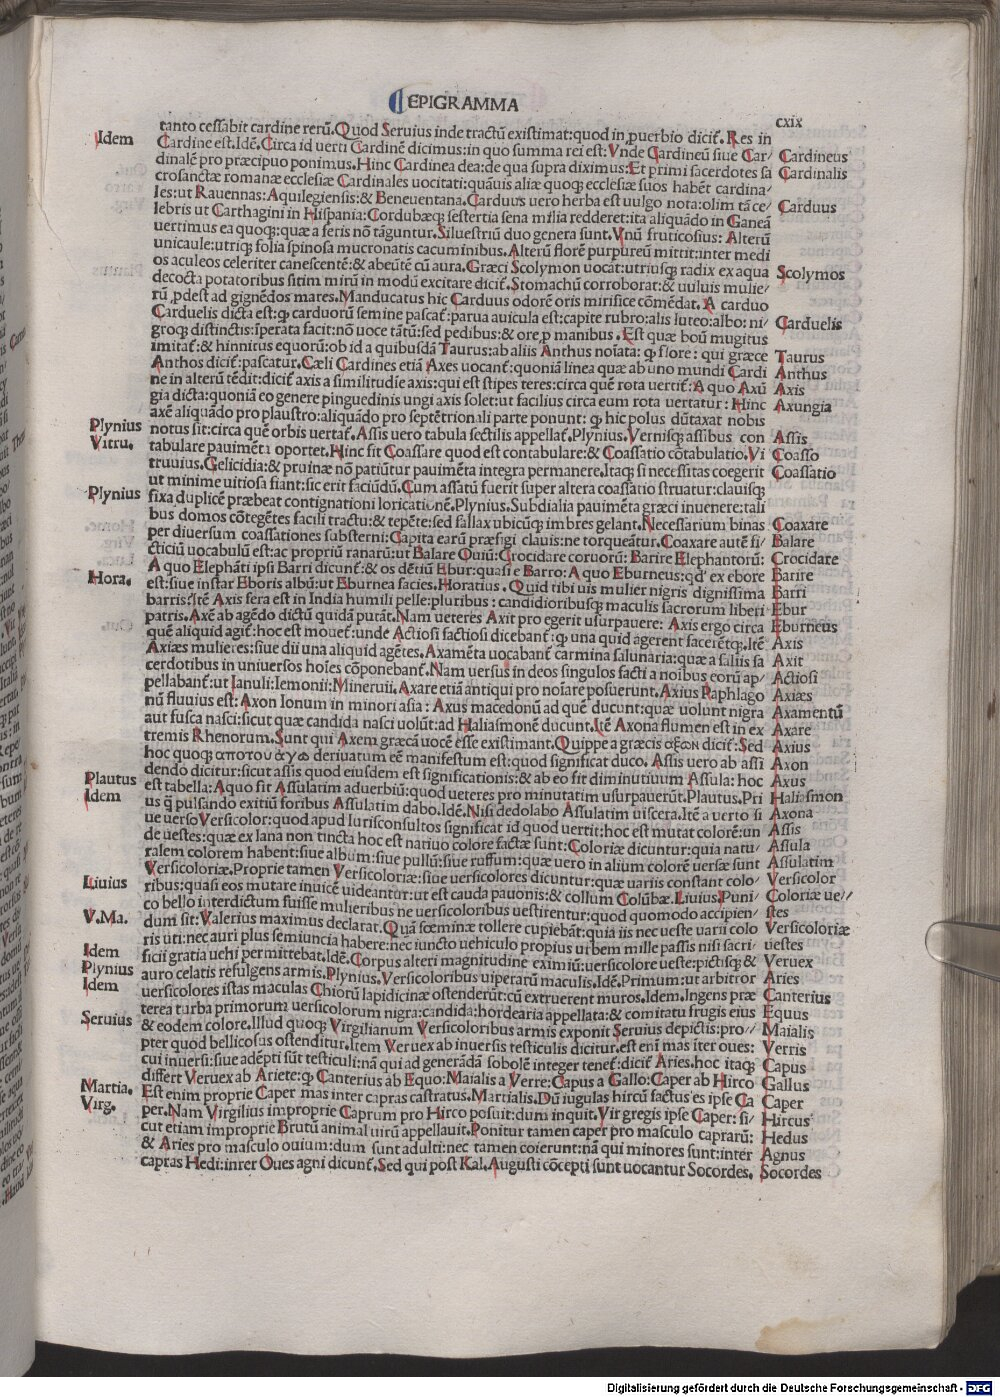 EPIGRAMMA
cxix
tanto cessabit cardine rerū. Quod Seruius inde tractū existimat: quod in ꝓuerbio dicit̃. Res in
Idem Cardine est. Idē. Circa id uerti Cardinē dicimus: in quo summa rei est: Vnde Cardineū siue Car/ Cardineus
dinalē pro præcipuo ponimus. Hinc Cardinea dea: de qua supra diximus: Et primi sacerdotes sa Cardinalis
crosanctæ romanæ ecclesiæ Cardinales uocitati: quāuis aliæ quoq; ecclesiæ suos habēt cardina/
les: ut Rauennas: Aquilegiensis: & Beneuentana. Carduus uero herba est uulgo nota: olim tā ce/ Carduus
lebris ut Carthagini in Hispania: Cordubæq; sestertia sena milia redderet: ita aliquādo in Ganeā
uertimus ea quoq;: quæ a feris nō tāguntur. Siluestriū duo genera sunt. Vnū fruticosius: Alterū
unicaule: utriq; folia spinosa mucronatis cacuminibus. Alterū florē purpureū mittit: inter medi
os aculeos celeriter canescentē: & abeūtē cū aura. Græci Scolymon uocāt: utriusq; radix ex aqua Scolymos
decocta potatoribus sitim mirū in modū excitare dicit̃. Stomachū corroborat: & uuluis mulie/
rū ꝓdest ad gignēdos mares. Manducatus hic Carduus odorē oris mirifice cōmēdat. A carduo
Carduelis dicta est: ꝙ carduorū semine pascat̃: parua auicula est: capite rubro: alis luteo: albo: ni/ Carduelis
groq; distinctis: īperata facit: nō uoce tātū: sed pedibus: & ore ꝓ manibus. Est quæ boū mugitus
imitat̃: & hinnitus equorū: ob id a quibusdā Taurus: ab aliis Anthus noīata: ꝙ flore: qui græce Taurus
Anthos dicit̃: pascatur. Cæli Cardines etiā Axes uocant̃: quoniā linea quæ ab uno mundi Cardi Anthus
ne in alterū tēdit: dicit̃ axis a similitudīe axis: qui est stipes teres: circa quē rota uertit̃: A quo Axū Axis
gia dicta: quoniā eo genere pinguedinis ungi axis solet: ut facilius circa eum rota uertatur: Hinc Axungia
axē aliquādo pro plaustro: aliquādo pro septētrionali parte ponunt: ꝙ hic polus dūtaxat nobis
Plynius notus sit: circa quē orbis uertat̃. Assis uero tabula sectilis appellat̃. Plynius. Vernisq; assibus con Assis
Vitru. tabulare pauimēta oportet. Hinc fit Coassare quod est contabulare: & Coassatio cōtabulatio. Vi Coasso
truuius. Gelicidia: & pruinæ nō patiūtur pauimēta integra permanere. Itaq; si necessitas coegerit Coassatio
ut minime uitiosa fiant: sic erit faciūdū. Cum assatū fuerit super altera coassatio struatur: clauisq;
Plynius fixa duplicē præbeat contignationi loricationē. Plynius. Subdialia pauimēta græci inuenere: tali
bus domos cōtegētes facili tractu: & tepēte: sed fallax ubicūq; imbres gelant. Necessarium binas Coaxare
per diuersum coassationes substerni: Capita earū præfigi clauis: ne torqueātur. Coaxare autē fi/ Balare
cticiū uocabulū est: ac propriū ranarū: ut Balare Ouiū: Crocidare coruorū: Barire Elephantorū: Crocidare
A quo Elephāti ipsi Barri dicunt̃: & os dētiū Ebur: quasi e Barro: A quo Eburneus: qd' ex ebore Barire
Hora. est: siue instar Eboris albū: ut Eburnea facies. Horatius. Quid tibi uis mulier nigris dignissima Barri
barris: itē Axis fera est in India humili pelle: pluribus: candidioribusq; maculis sacrorum liberi Ebur
patris. Axē ab agēdo dictū quidā putāt. Nam ueteres Axit pro egerit usurpauere: Axis ergo circa Eburneus
quē aliquid agit̃: hoc est mouet̃: unde Actiosi factiosi dicebant̃: ꝙ una quid agerent facerētq;. Itē Axis
Axiæs mulieres: siue dii una aliquid agētes. Axamēta uocabant̃ carmina saliaria: quæ a saliis sa Axit
cerdotibus in uniuersos hoīes cōponebant̃. Nam uersus in deos singulos facti a noībus eorū ap/ Actiosi
pellabant̃: ut Ianuli: Iemonii: Mineruii. Axare etiā antiqui pro noīare posuerunt. Axius Paphlago Axiæs
nū fluuius est: Axon Ionum in minori asia: Axus macedonū ad quē ducunt: quæ uolunt nigra Axamentū
aut fusca nasci: sicut quæ candida nasci uolūt: ad Haliasmonē ducunt. Itē Axona flumen est in ex Axare
tremis Rhenorum. Sunt qui Axem græcā uocē esse existimant. Quippe a græcis αξων dicit̃: Sed Axius
hoc quoq; απο του αγω deriuatum eē manifestum est: quod significat duco. Assis uero ab assi Axon
dendo dicitur: sicut assis quod eiusdem est significationis: & ab eo fit diminutiuum Assula: hoc Axus
Plautus est tabella: A quo fit Assulatim aduerbiū: quod ueteres pro minutatim usurpauerūt. Plautus. Pri Haliasmon
Idem us q̃ pulsando exitiū foribus Assulatim dabo. Idē. Nisi dedolabo Assulatim uiscera. Itē a uerto si Axona
ue uerso Versicolor: quod apud Iurisconsultos significat id quod uertit: hoc est mutat colorē: un Assis
de uestes: quæ ex lana non tincta hoc est natiuo colore factæ sunt: Coloriæ dicuntur: quia natu/ Assula
ralem colorem habent: siue album: siue pullū: siue ruffum: quæ uero in alium colorē uersæ sunt Assulatim
Versicoloriæ. Proprie tamen Versicoloriæ: siue uersicolores dicuntur: quæ uariis constant colo/ Versicolor
Liuius ribus: quasi eos mutare inuicē uideantur: ut est cauda pauonis: & collum Colūbæ. Liuius. Puni/ Coloriæ ue//
co bello interdictum fuisse mulieribus ne uersicoloribus uestirentur: quod quomodo accipien/ stes
V. Ma. dum sit: Valerius maximus declarat. Quā fœminæ tollere cupiebāt: quia iis nec ueste uarii colo Versicoloriæ
ris uti: nec auri plus semiuncia habere: nec iuncto uehiculo propius urbem mille passis nisi sacri/ uestes
Idem ficii gratia uehi permittebat. Idē. Corpus alteri magnitudine eximiū: uersicolore ueste: pictisq; & Veruex
Plynius auro celatis refulgens armis. Plynius. Versicoloribus uiperarū maculis. Idē. Primum: ut arbitror Aries
Idem uersicolores istas maculas Chiorū lapidicinæ ostenderūt: cū extruerent muros. Idem. Ingens præ Canterius
terea turba primorum uersicolorum nigra: candida: hordearia appellata: & comitatu frugis eius Equus
Seruius & eodem colore. Illud quoq; Virgilianum Versicoloribus armis exponit Seruius depictis: pro// Maialis
pter quod bellicosus ostenditur. Item Veruex ab inuersis testiculis dicitur. est enī mas īter oues: Verris
cui inuersi: siue adēpti sūt testiculi: nā qui ad generādā sobolē integer tenet̃: dicit̃ Aries. hoc itaq; Capus
differt Veruex ab Ariete: ꝙ Canterius ab Equo: Maialis a Verre: Capus a Gallo: Caper ab Hirco Gallus
Martia. Est enim proprie Caper mas inter capras castratus. Martialis. Dū iugulas hircū factus es ipse Ca Caper
Virg. per. Nam Virgilius improprie Caprum pro Hirco posuit: dum inquit. Vir gregis ipse Caper: si/ Hircus
cut etiam improprie Brutū animal uirū appellauit. Ponitur tamen caper pro masculo caprarū: Hedus
& Aries pro masculo ouium: dum sunt adulti: nec tamen coierunt: nā qui minores sunt: inter Agnus
capras Hedi: inter Oues agni dicunt̃. Sed qui post Kal. Augusti cōcepti sunt uocantur Socordes. Socordes
Digitalisierung gefördert durch die Deutsche Forschungsgemeinschaft - DFG